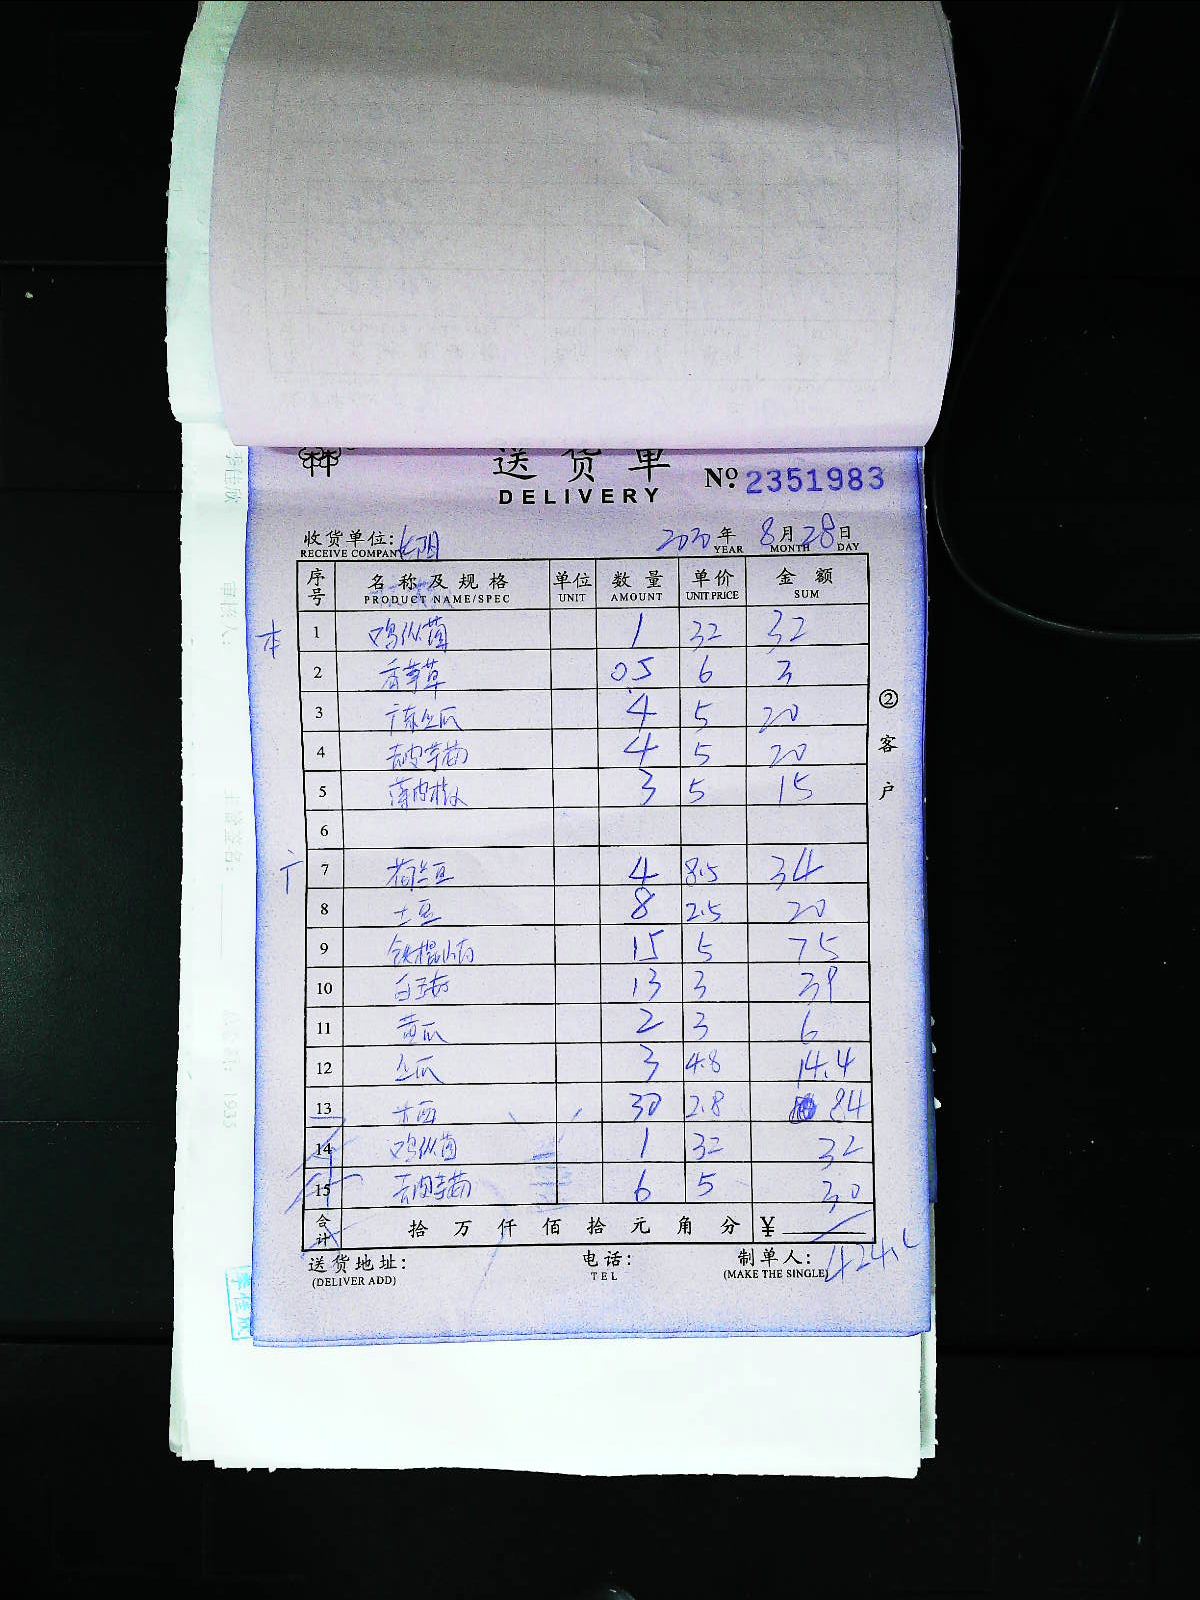 送货单
DELIVERY
No. 2351983
收货单位:
RECEIVE COMPANY
2020年 8月28日
YEAR MONTH DAY
序号 名称及规格 单位 数量 单价 金额
PRODUCT NAME/SPEC UNIT AMOUNT UNIT PRICE SUM
本
1 鸡纵菌 1 32 32
2 香茅草 0.5 6 3
3 广东丝瓜 4 5 20
4 去皮草菇 4 5 20
5 薄肉椒 3 5 15
6
7 荷兰豆 4 8.5 34
8 土豆 8 2.5 20
9 铁棍山药 15 5 75
10 13 3 39
11 黄瓜 2 3 6
12 丝瓜 3 4.8 14.4
13 30 2.8 84
14 鸡纵菌 1 32 32
15 去皮草菇 6 5 30
合计 拾 万 仟 佰 拾 元 角 分 ¥
424.4
送货地址: 电话: 制单人:
(DELIVER ADD) TEL (MAKE THE SINGLE)
②客户